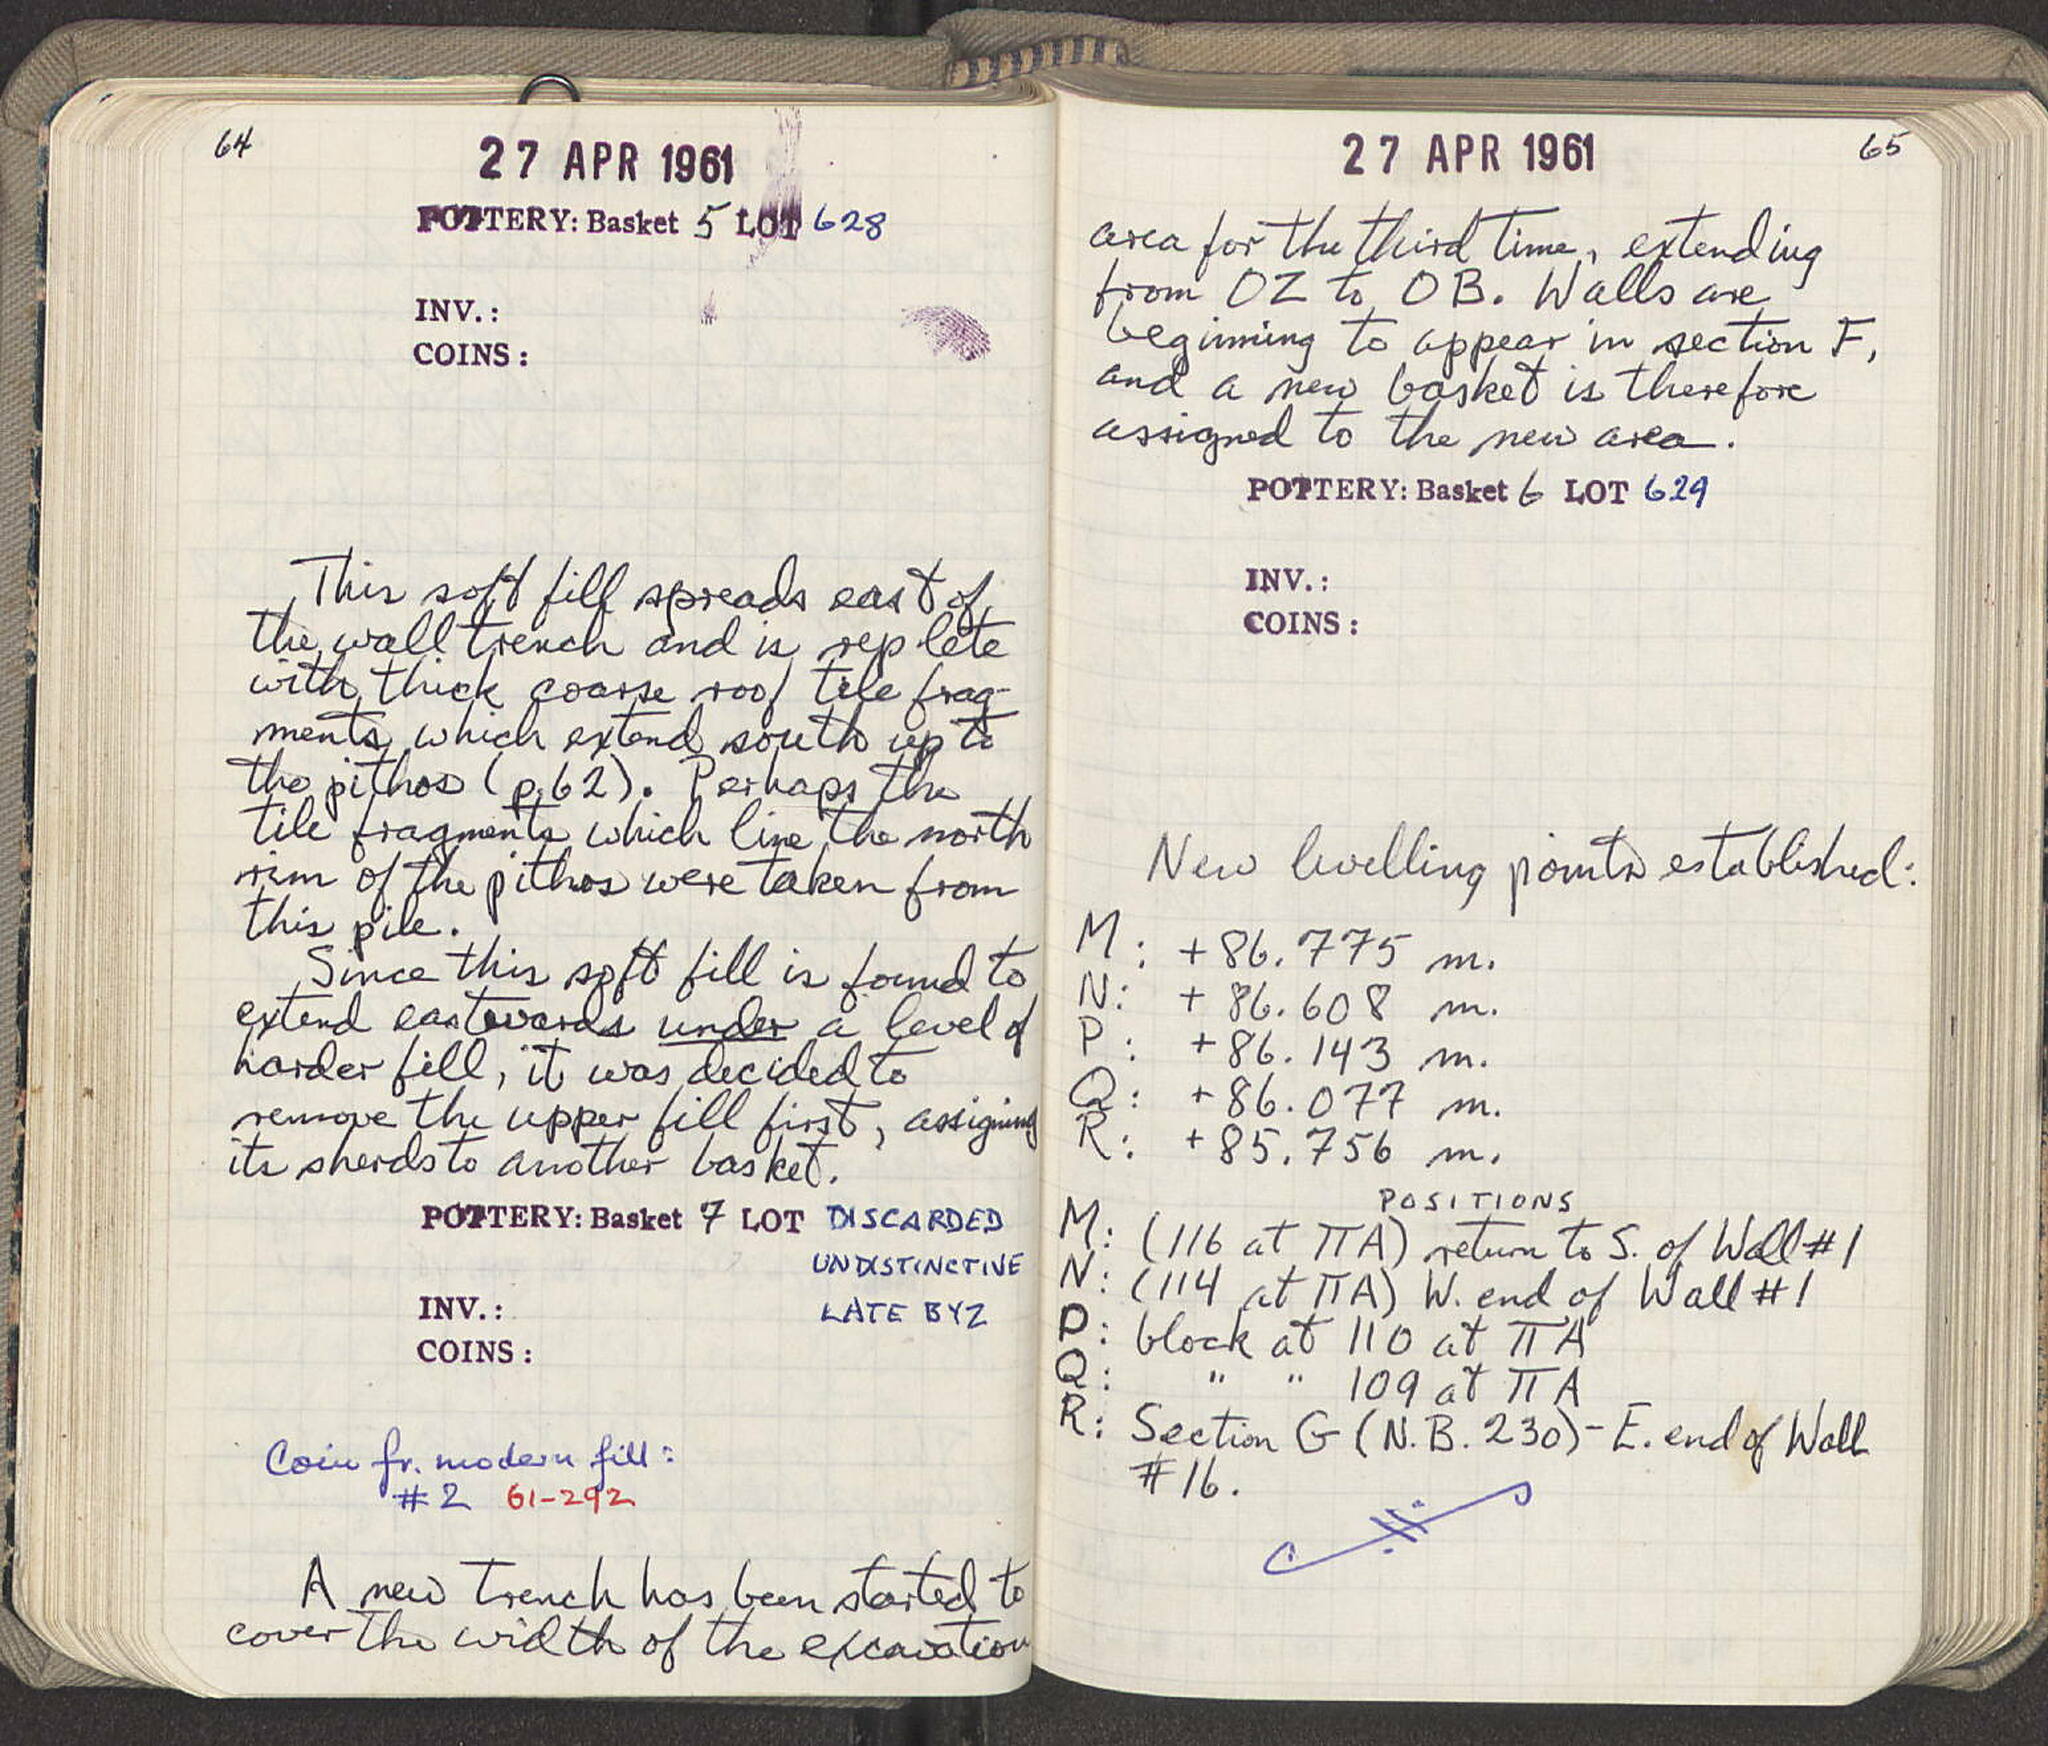 64
27 APR 1961
POTTERY: Basket 5 LOT 628
INV.:
COINS:
This soft fill spreads east of
the wall trench and is replete
with thick coarse roof tile frag-
ments which extend south up to
the pithos (p.62). Perhaps the
tile fragments which line the north
rim of the pithos were taken from
this pile.
Since this soft fill is found to
extend eastwards under a level of
harder fill, it was decided to
remove the upper fill first, assigning
its sherds to another basket.
POTTERY: Basket 7 LOT DISCARDED
UNDISTINCTIVE
INV.: LATE BYZ
COINS:
Coin fr. modern fill:
#2 61-292
A new trench has been started to
cover the width of the excavation
65
27 APR 1961
area for the third time, extending
from OZ to OB. Walls are
beginning to appear in section F,
and a new basket is therefore
assigned to the new area.
POTTERY: Basket 6 LOT 629
INV.:
COINS:
New levelling points established:
M: +86.775 m.
N: +86.608 m.
P: +86.143 m.
Q: +86.077 m.
R: +85.756 m.
POSITIONS
M: (116 at ΠA) return to S. of Wall #1
N: (114 at ΠA) W. end of Wall #1
P: block at 110 at ΠA
Q: " " 109 at ΠA
R: Section G (N.B. 230) - E. end of Wall
#16.